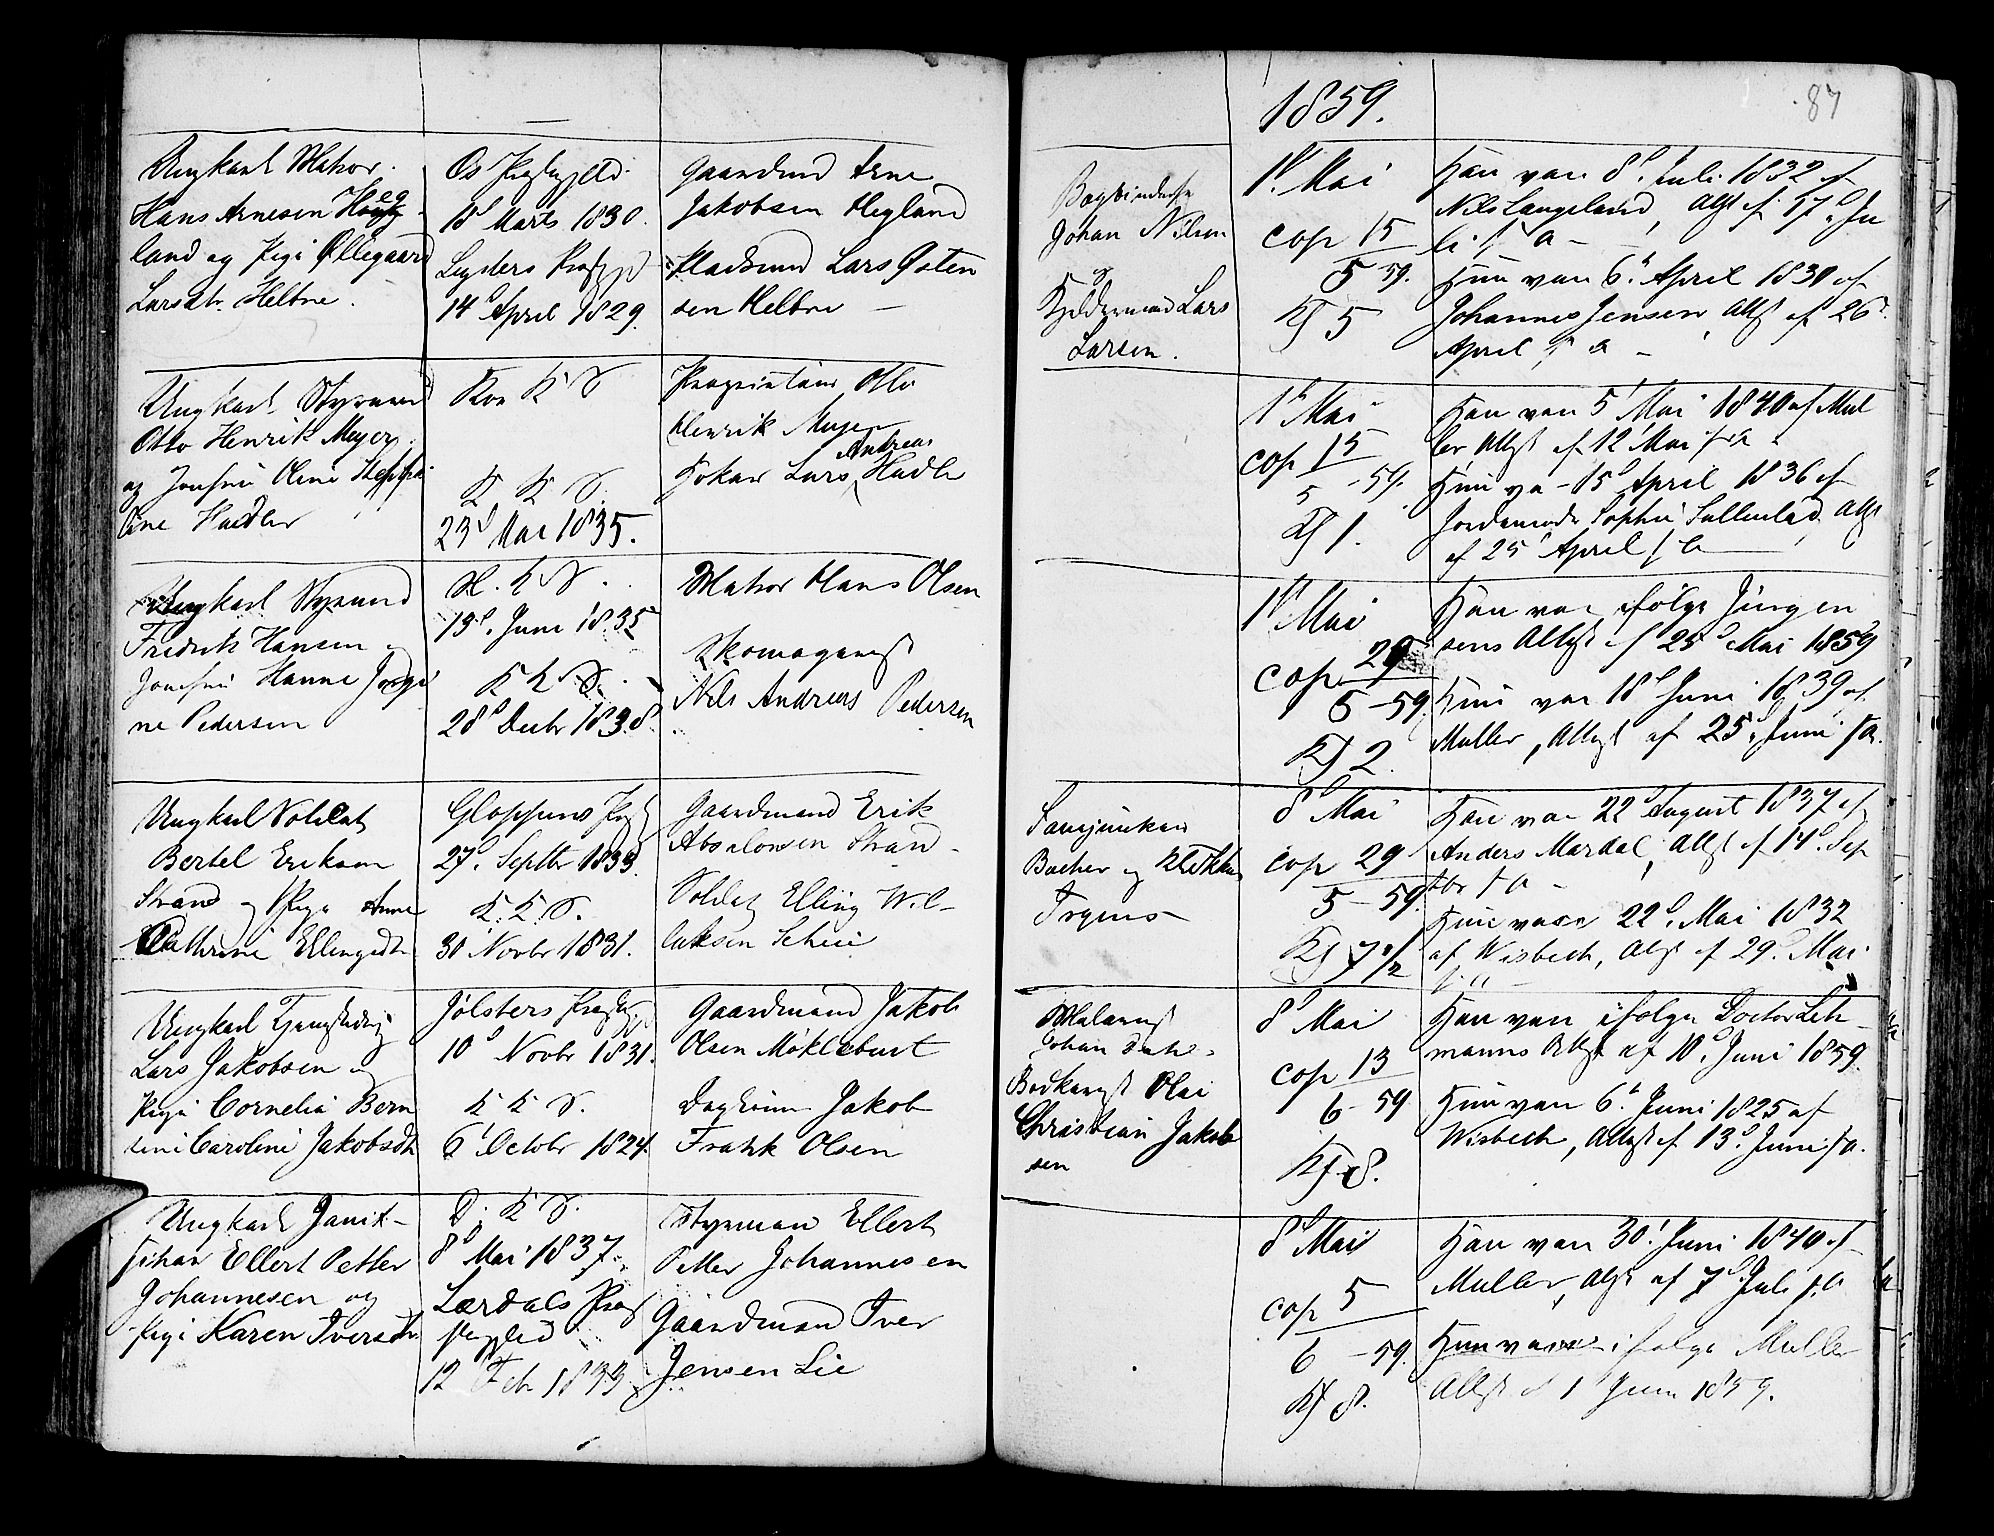 1859.
87
Ungkarl Matros
Hans Arnesen Heg
land og Pige Øllegaard
Larsdtr. Heltne.
Os Præstegjeld
18d Marts 1830.
Lysters Præstgjd
14d April 1829.
Gaardmd Arne
Jakobsen Hegland
Pladsmd Lars Østen
sen Heltne
Bogbinder
Johan Nilsen
Lars
Larsen.
1d Mai
cop 15
5 59.
5
Han van 8d Juli 1832 af
Nils Langeland, Attst af 17d Ju
li s. a -
Hun van 6d April 1830 af
Johannes Jensen, Attst af 26d
April s. a -
Ungkarl Styrmand
Otto Henrik Meyer
og Jomfru Oline
line Hadler
K S
K K S.
23d Mai 1835.
Proprietair Otto
Henrik Meyer
Andreas
Lars Hadler
1d Mai
cop 15
5 - 59.
1.
Han van 5 Mai 1840 af Mul
ler, Attst af 12 Mai s. a.
Hun va - 15d April 1836 af
Jordemoder Sophie Attst
af 25d April s. a
Ungkarl Styrmand
Fredrik Hansen og
Jomfru Hanne Jørgi
ne Pedersen
K S.
13d. Juni 1835
K K S.
28d Decbr 1838.
Matros Hans Olsen
Skomagerst
Nils Andreas Pedersen
1d Mai
cop 29
5 - 59.
2.
Han van ifølge Jürgen
sens Attst af 25d Mai 1859
Hun van 18d Juni 1839 af
Muller, Attst af 25d Juni s. a.
Ungkarl Soldat
Bertel Eriksen
Strand og Pige Anne
Cathrine Ellingsdtr
Gloppens Præst
27d. Septbr 1833.
K. K. S.
30 Novbr 1831.
Gaardmand Erik
Absalonsen Strand
Soldat Elling Wil-
8d Mai
cop 29
5 - 59.
7 1/2
Han van 22d August 1837 af
Anders Mardal, Attst af 14d. Sep
tbr s. a -
Hun van 22d. Mai 1832
af Wisbech, Attst af 29d. Mai
s. a
Ungkarl
Lars Jakobsen og
Pige Cornelia Bern
tine Caroline Jakobsdtr
Jølsters Præstegjd
10d Novbr 1831.
K K S.
6d Octobr 1824.
Gaardmand Jakob
Olsen Møklebust
Jakob
Frank Olsen
Malerst
Johan Dahl
Bødkerst Olai
Christian Jakob
sen
8d Mai
cop 13
6 - 59
8.
Han van ifølge Doctor Leh
manns Attst af 10d. Juni 1859.
Hun van 6d. Juni 1825 af
Wisbech, Attst af 13d. Juni s. a.
Ungkarl Janit-
schar Ellert Petter
Johannesen og
Pige Karen Iversdtr
D. K S.
8d Mai 1837.
Lærdals Præs
tegjeld
12 Feb 1833.
Styrman Ellert
Petter Johannesen
Gaardmand Iver
Jensen Lie
8d Mai
cop 5
6 - 59.
8.
Han van 30d. Juni 1840 af
Muller, Attst af 7d. Juli s. a
Hun van ifølge Muller
Attst af 1d Juni 1859.